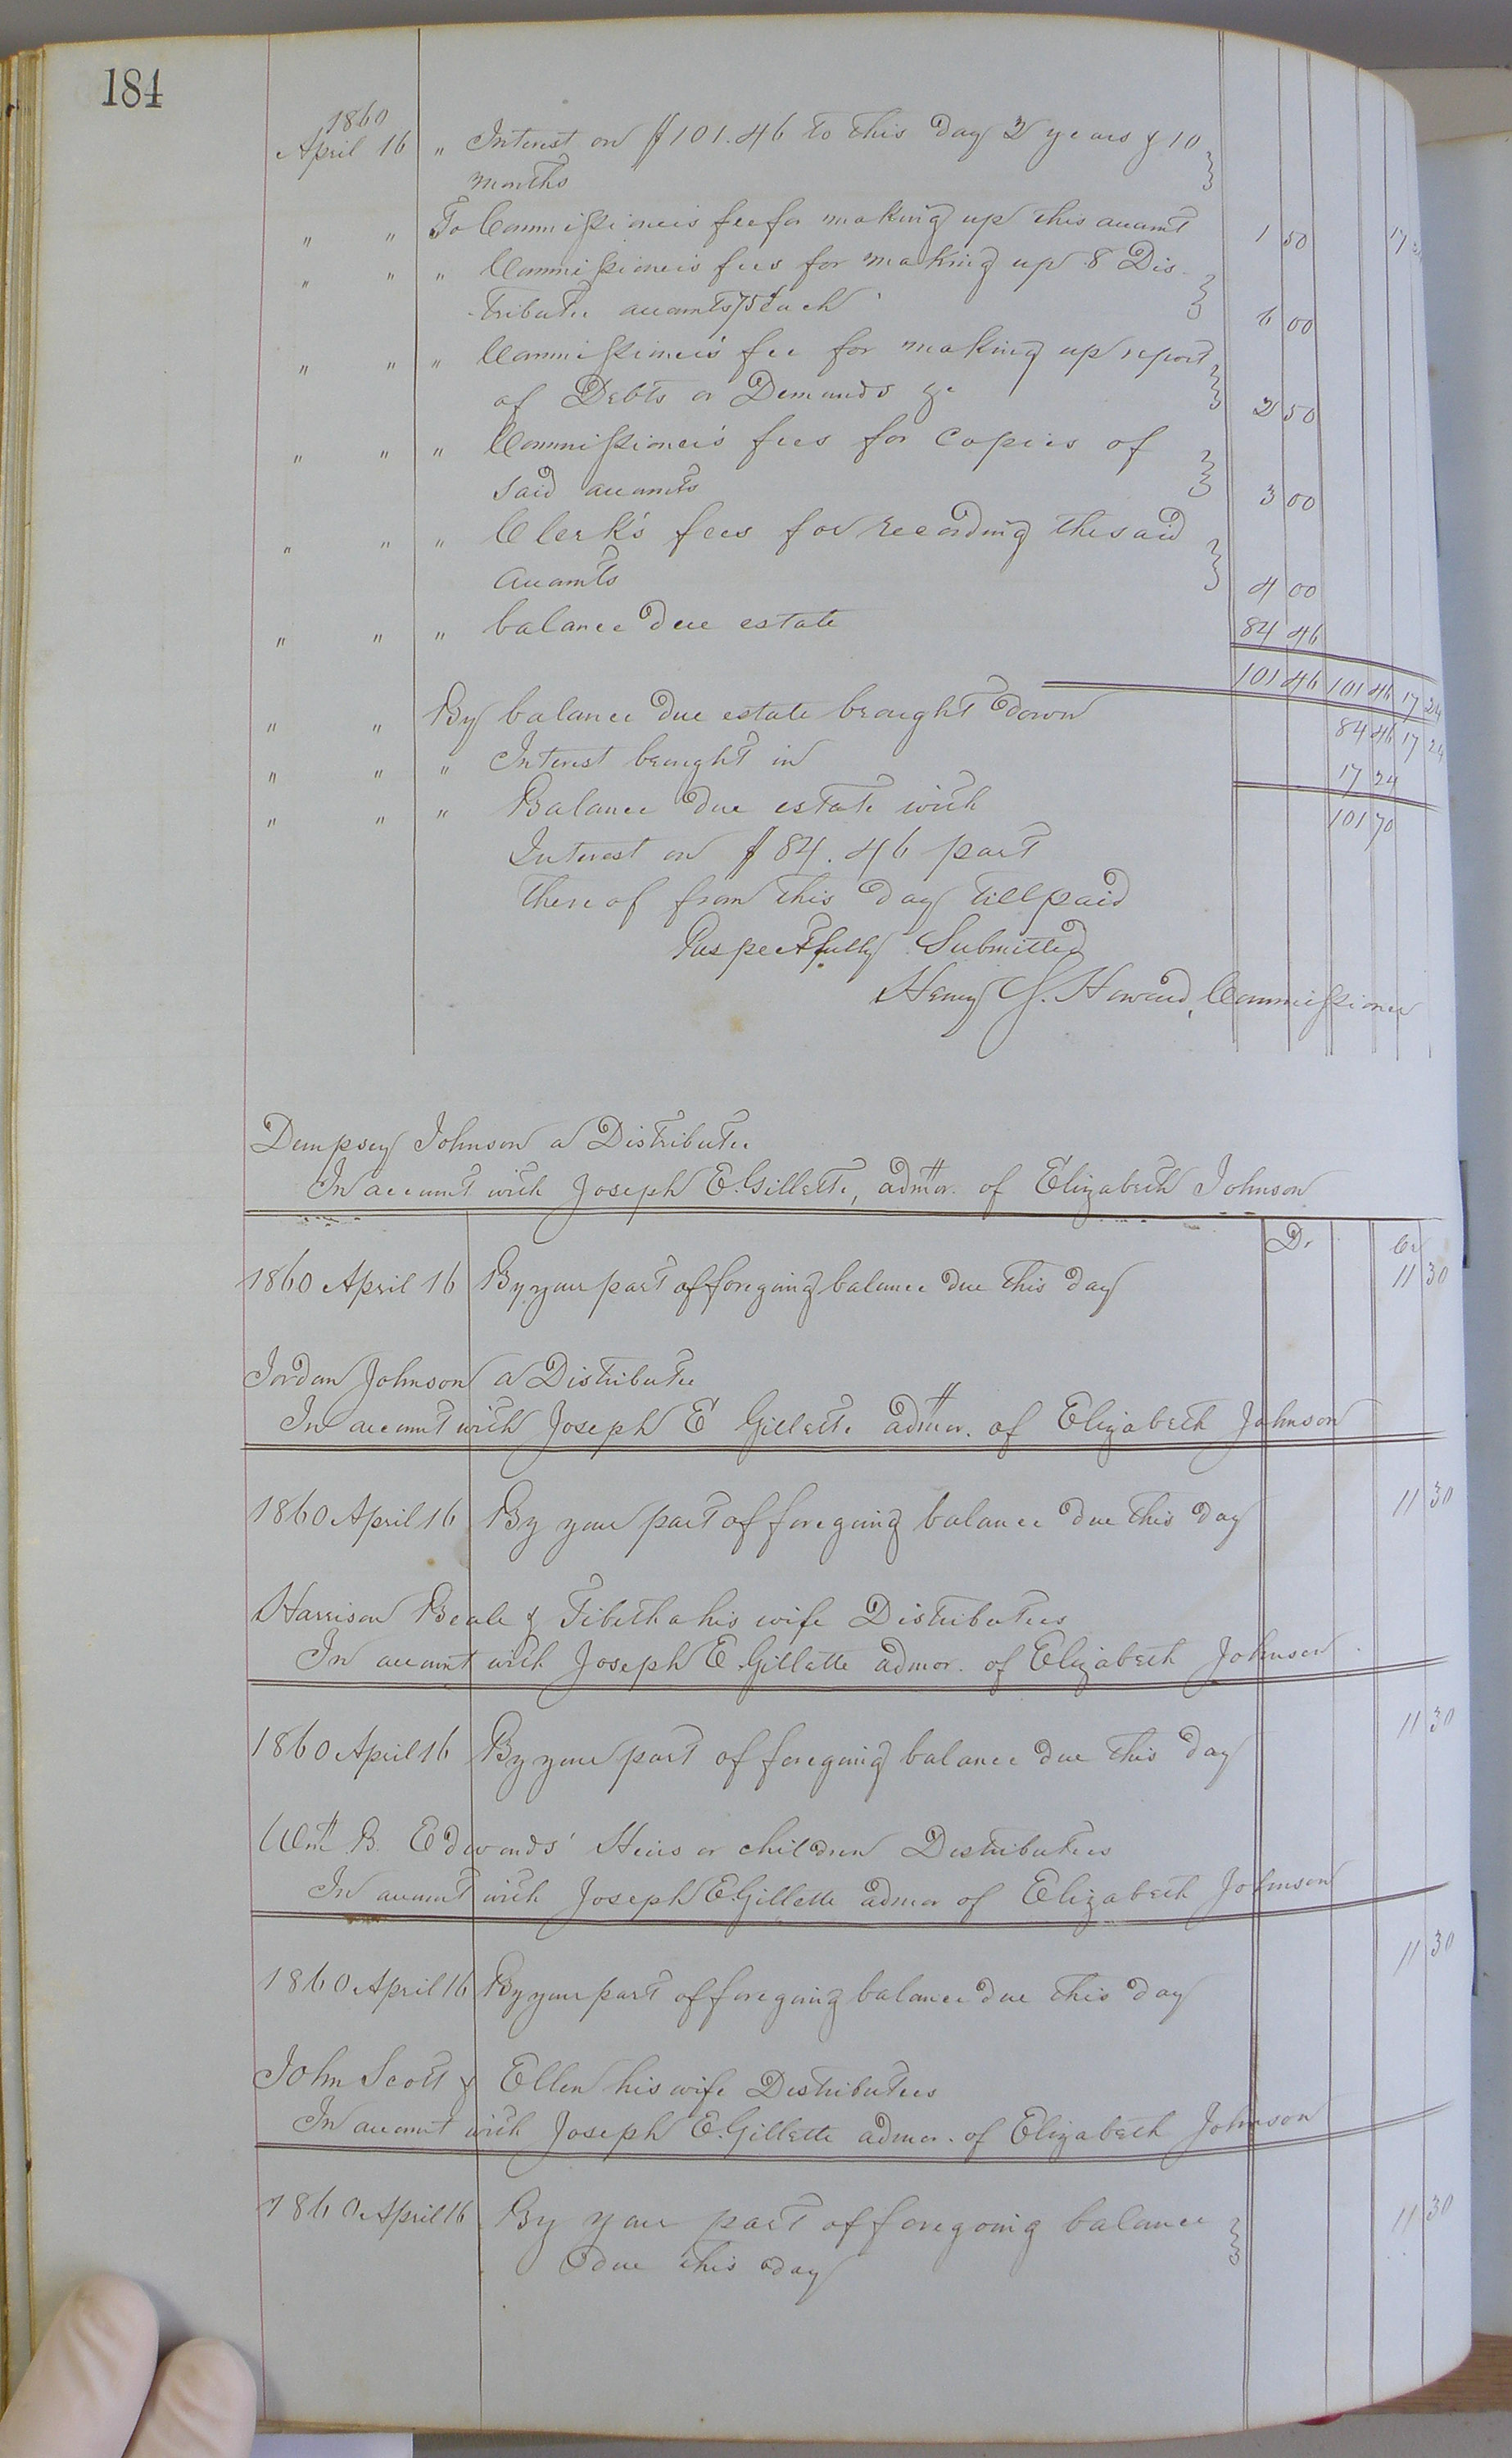 184
1860
April 16 " Interest on $101.46 to this day 2 years & 10
months } 17 24
" " To Commissioners fee for making up this account 1 50
" " " Commissioners fees for making up 8 Dis-
tributee accounts 75¢ each } 6 00
" " " Commissioner's fee for making up report
of Debts or Demands &c } 2 50
" " " Commissioner's fees for Copies of
said accounts } 3 00
" " " Clerk's fees for recording the said
accounts } 4 00
" " " balance due estate 84 46
101 46 101 46 17 24
" " By balance due estate brought down 84 46 17 24
" " " Interest brought in 17 24
" " " Balance due estate with 101 70
Interest on $84.46 part
thereof from this day till paid
Respectfully Submitted
Henry S. Howard, Commissioner
Dempsey Johnson a Distributee
In account with Joseph E. Gillette, admor. of Elizabeth Johnson
Dr Cr
1860 April 16 By your part of foregoing balance due this day 11 30
Jordan Johnson a Distributee
In account with Joseph E Gillette admor. of Elizabeth Johnson
1860 April 16 By your part of foregoing balance due this day 11 30
Harrison Beale & Tibetha his wife Distributees
In account with Joseph E. Gillette admor. of Elizabeth Johnson
1860 April 16 By your part of foregoing balance due this day 11 30
Wm B. Edwards' Heirs or children Distributees
In account with Joseph E. Gillette admor of Elizabeth Johnson
1860 April 16 By your part of foregoing balance due this day 11 30
John Scott & Ellen his wife Distributees
In account with Joseph E. Gillette admor. of Elizabeth Johnson
1860 April 16 By your part of foregoing balance
due this day } 11 30